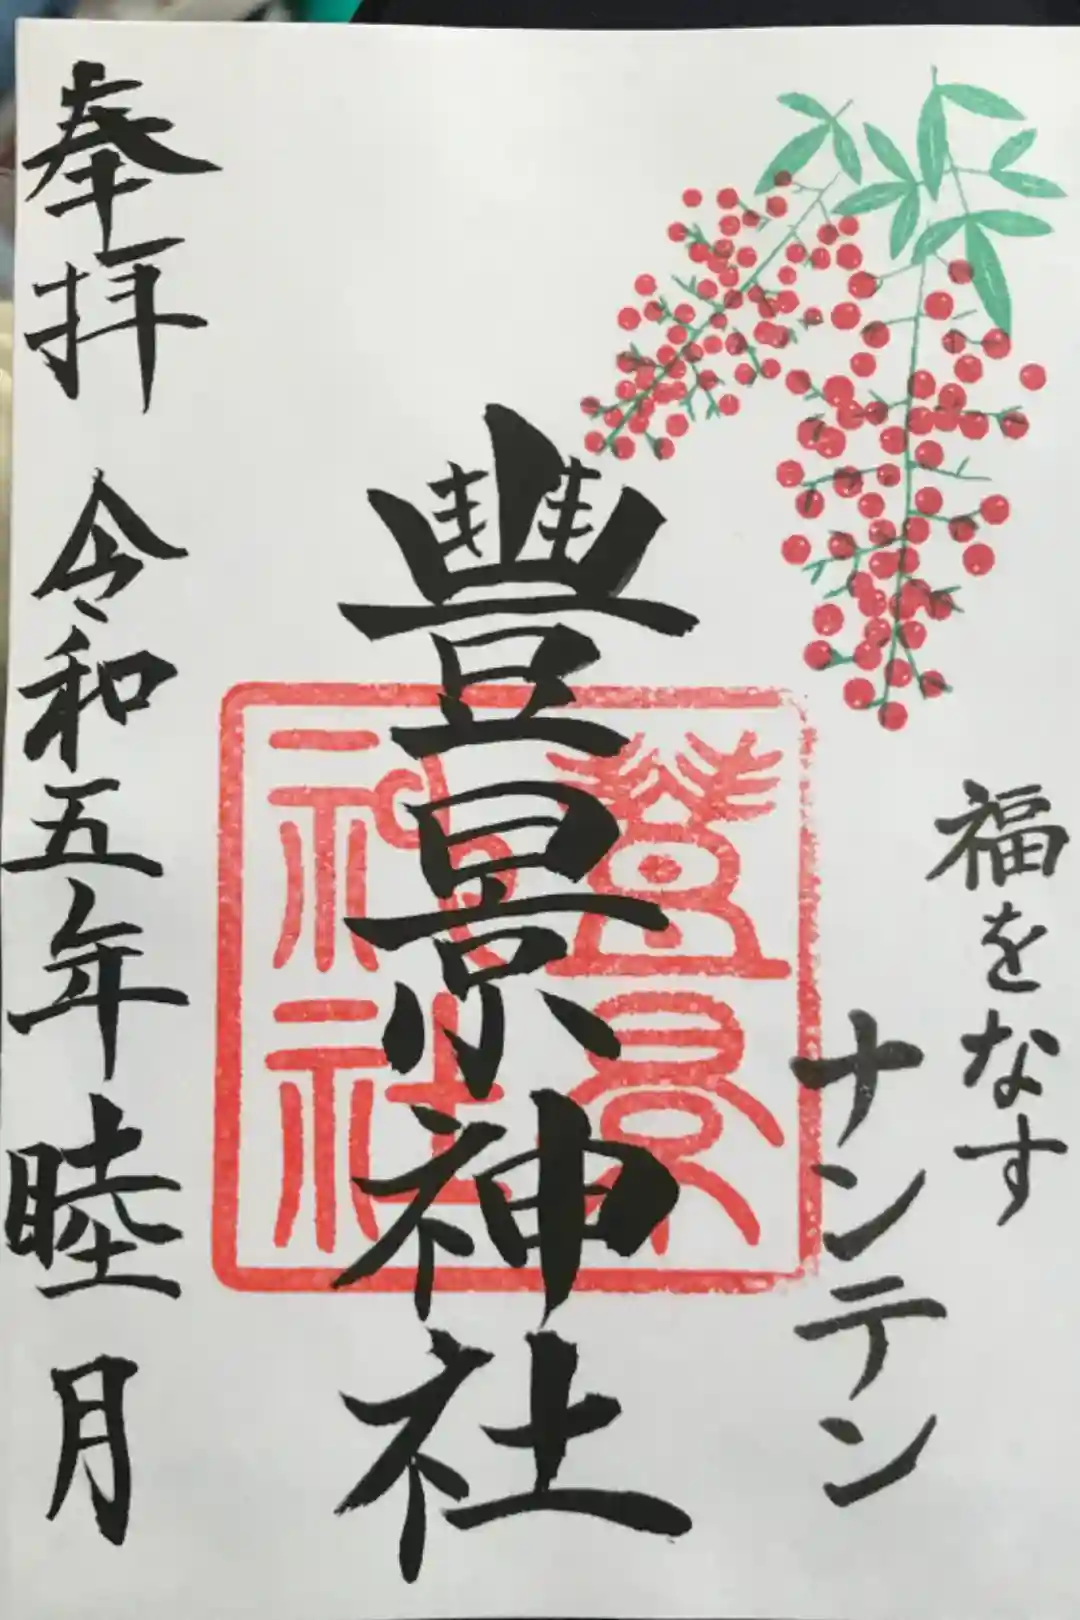 福をなす
ナンテン
豐景神社
豐景
神社
奉拝 令和五年 睦月